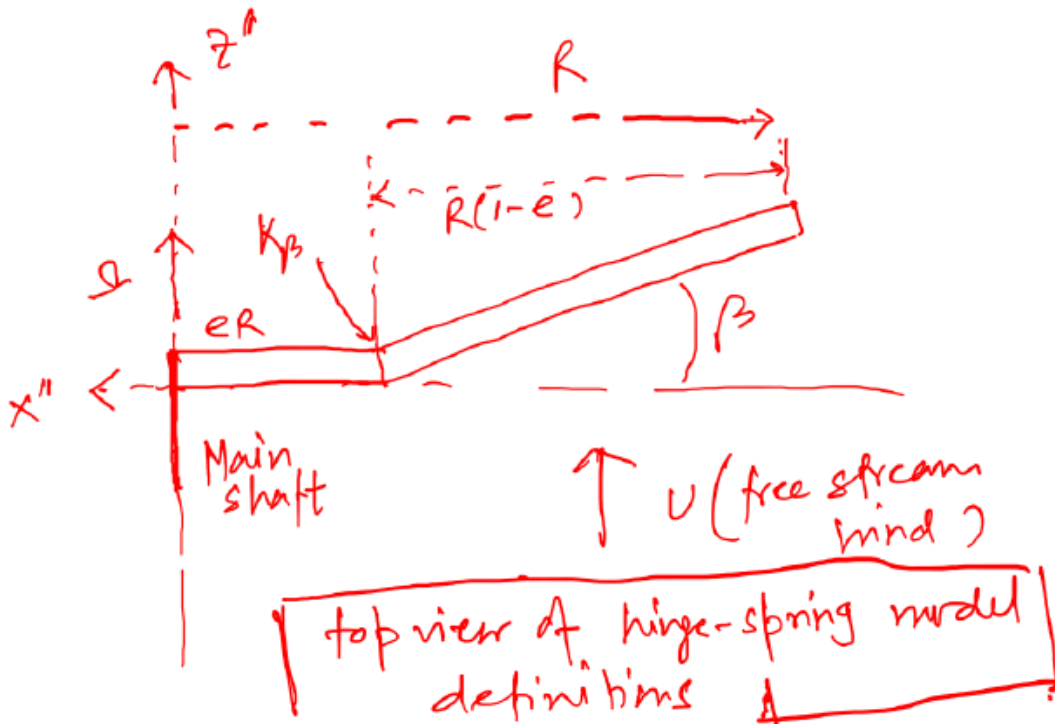 Z"
R
R(1-e)
Kβ
Ω
eR
β
X"
Main
shaft
U (free stream
wind)
top view of hinge-spring model
definitions